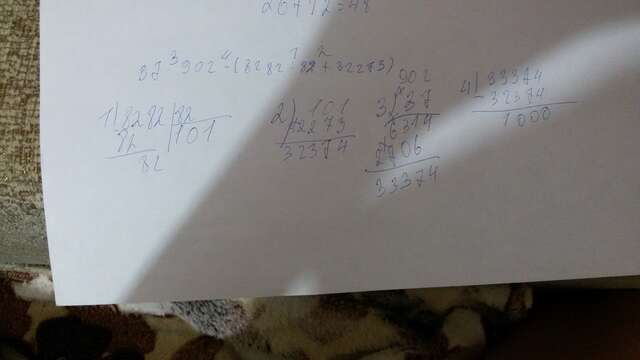 37 · 902 - (8282 : 82 + 32273)
1) 8282 | 82
82 | 101
82
2) 101
32273
32374
3) 902
37
6314
2706
33374
4) 33374
- 32374
1000